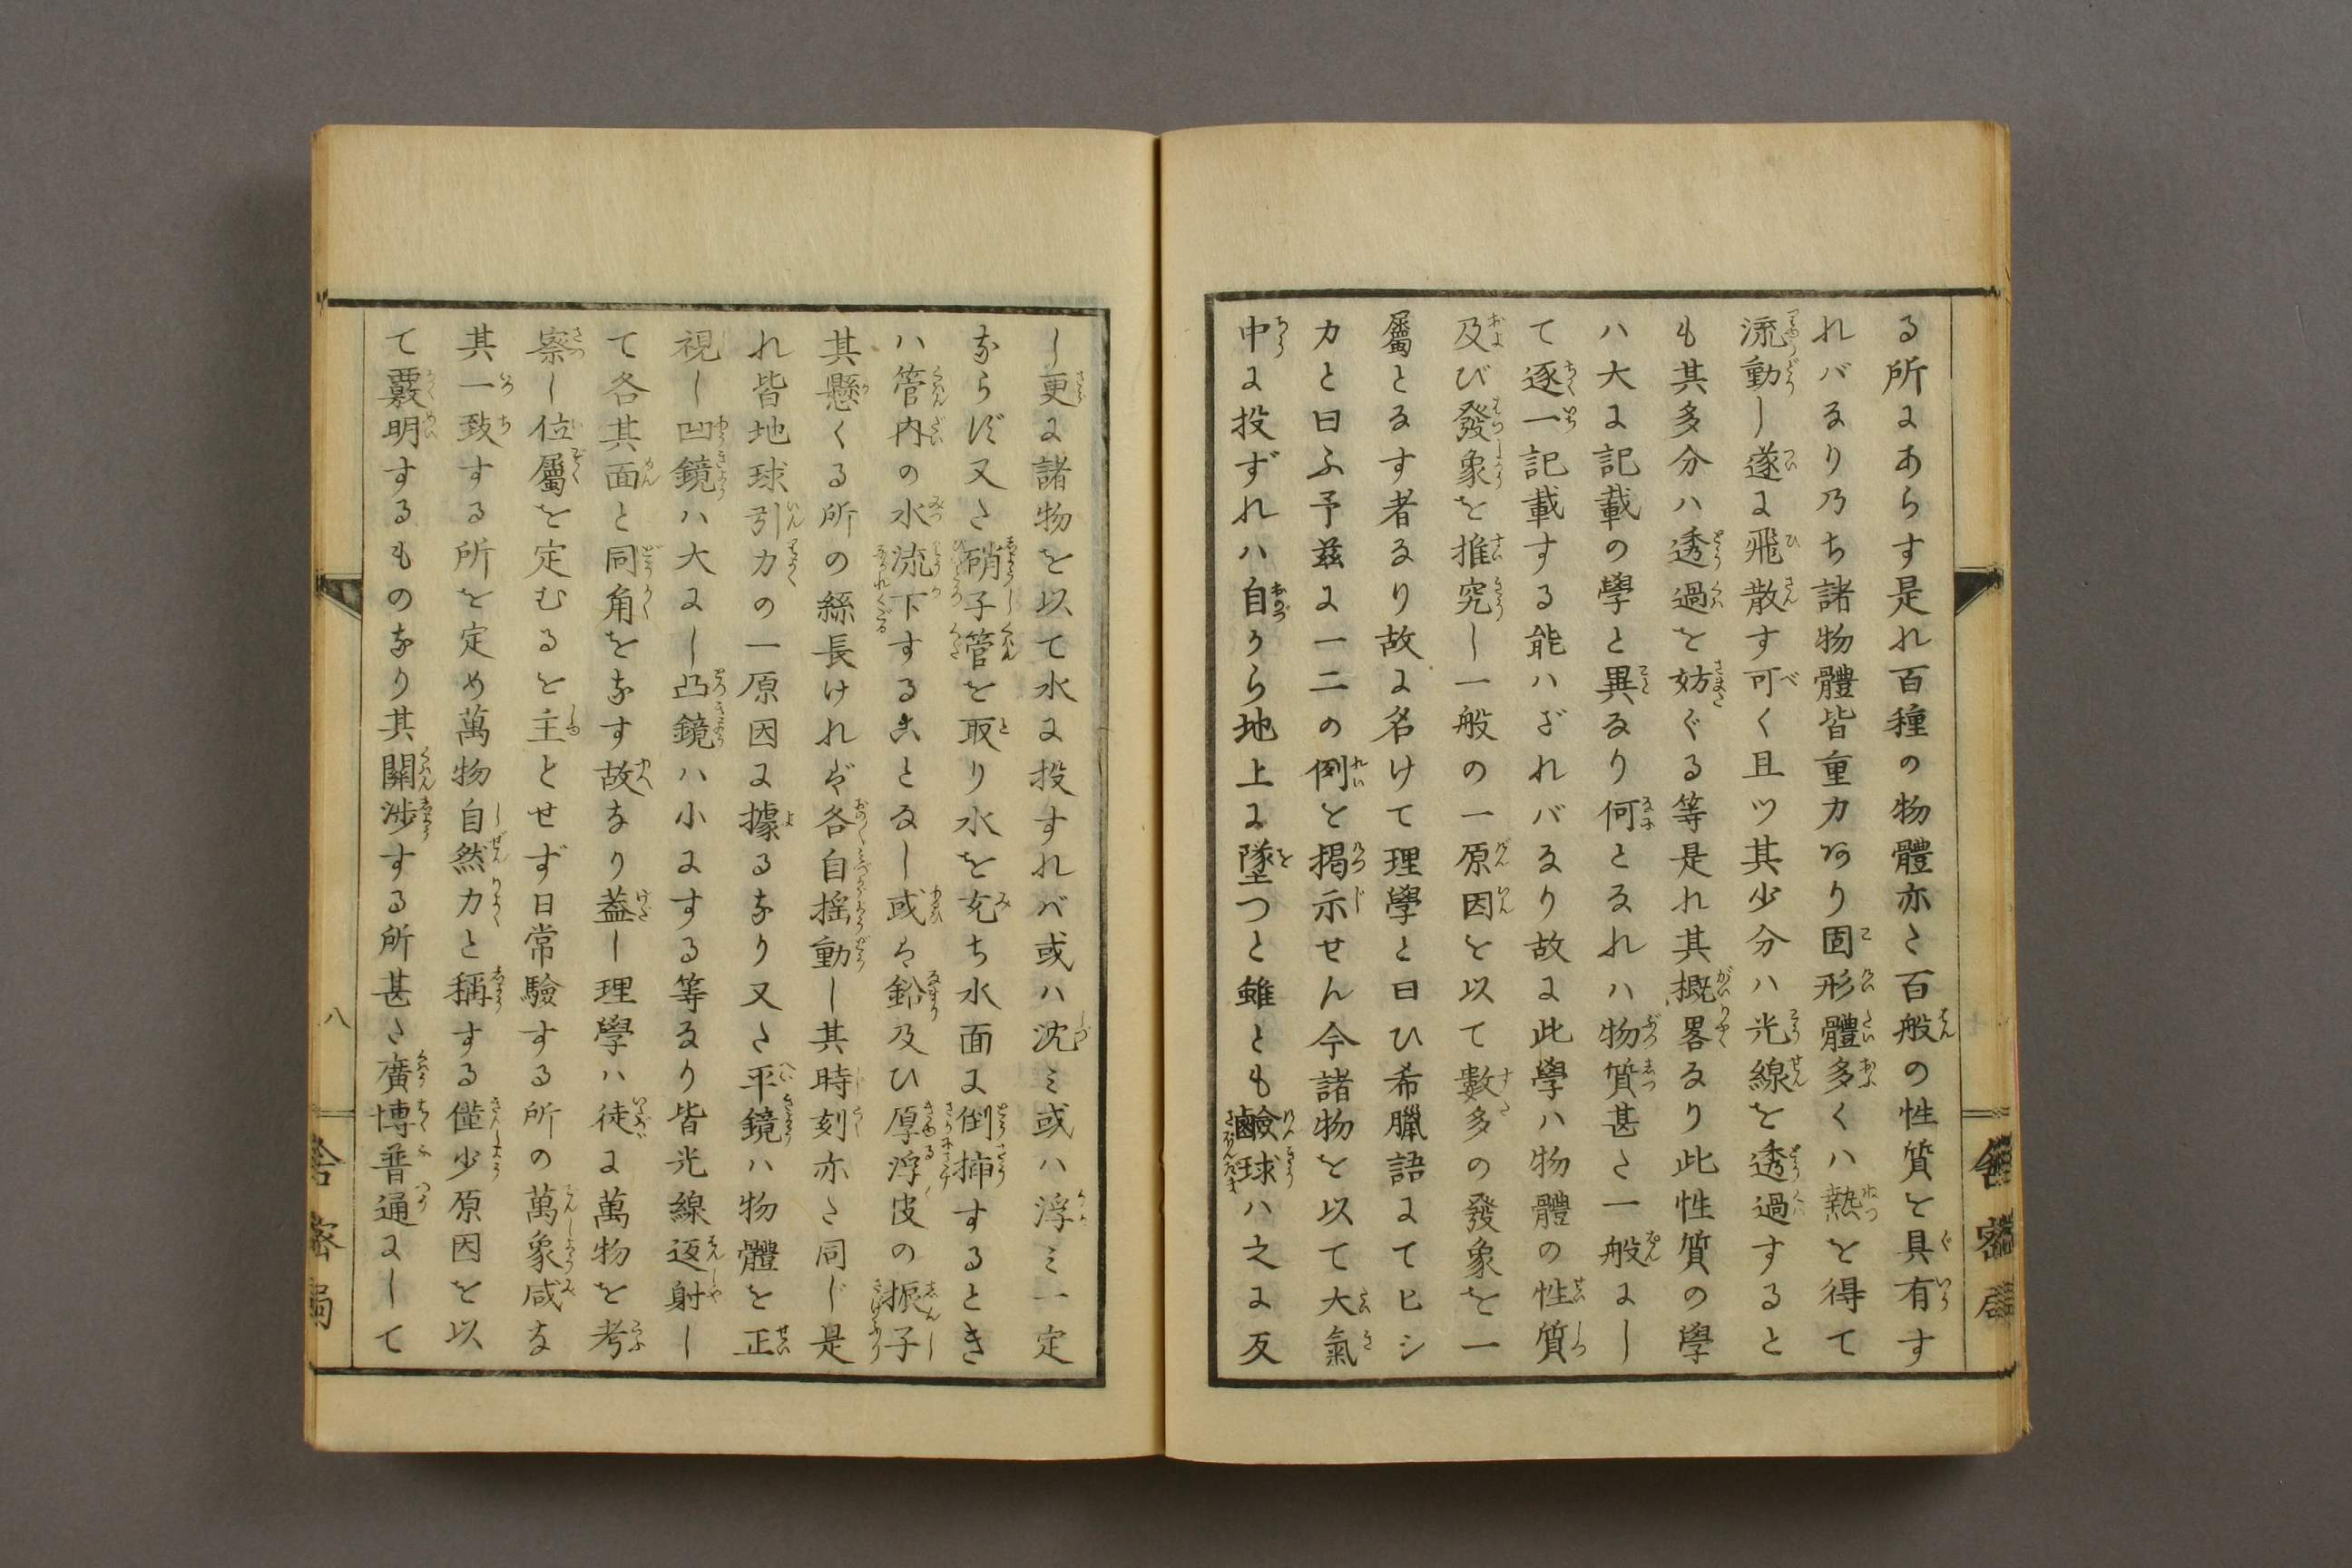 る所にあらす是れ百種の物體亦た百般の性質を具有す
れバなり乃ち諸物體皆重力あり固形體多くハ熱を得て
流動し遂に飛散す可く且ツ其少分ハ光線を透過すると
も其多分ハ透過を妨ぐる等是れ其概畧なり此性質の學
ハ大に記載の學と異なり何となれハ物質甚た一般にし
て逐一記載する能ハざれバなり故に此學ハ物體の性質
及び發象を推究し一般の一原因を以て數多の發象を一
屬となす者なり故に名けて理學と曰ひ希臘語にてヒシ
カと曰ふ予茲に一二の例を揭示せん今諸物を以て大氣
中に投ずれハ自から地上に墜つと雖とも鹼球ハ之に反
し更に諸物を以て水に投すれバ或ハ沈ミ或ハ浮ミ一定
ならず又た硝子管を取り水を充ち水面に倒揷するとき
ハ管内の水流下することなし或は鉛及ひ厚浮皮の振子
其懸くる所の絲長ければ各自揺動し其時刻亦た同じ是
れ皆地球引力の一原因に據るなり又た平鏡ハ物體を正
視し凹鏡ハ大にし凸鏡ハ小にする等なり皆光線返射し
て各其面と同角をなす故なり蓋し理學ハ徒に萬物を考
察し位屬を定むるを主とせず日常驗する所の萬象咸な
其一致する所を定め萬物自然力と稱する僅少原因を以
て覈明するものなり其關渉する所甚た廣博普通にして
八
舎密局